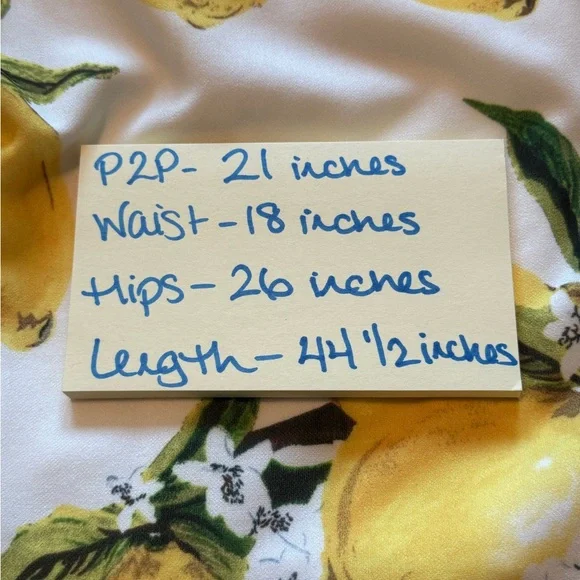 P2P- 21 inches
Waist - 18 inches
Hips - 26 inches
Length - 44 1/2 inches